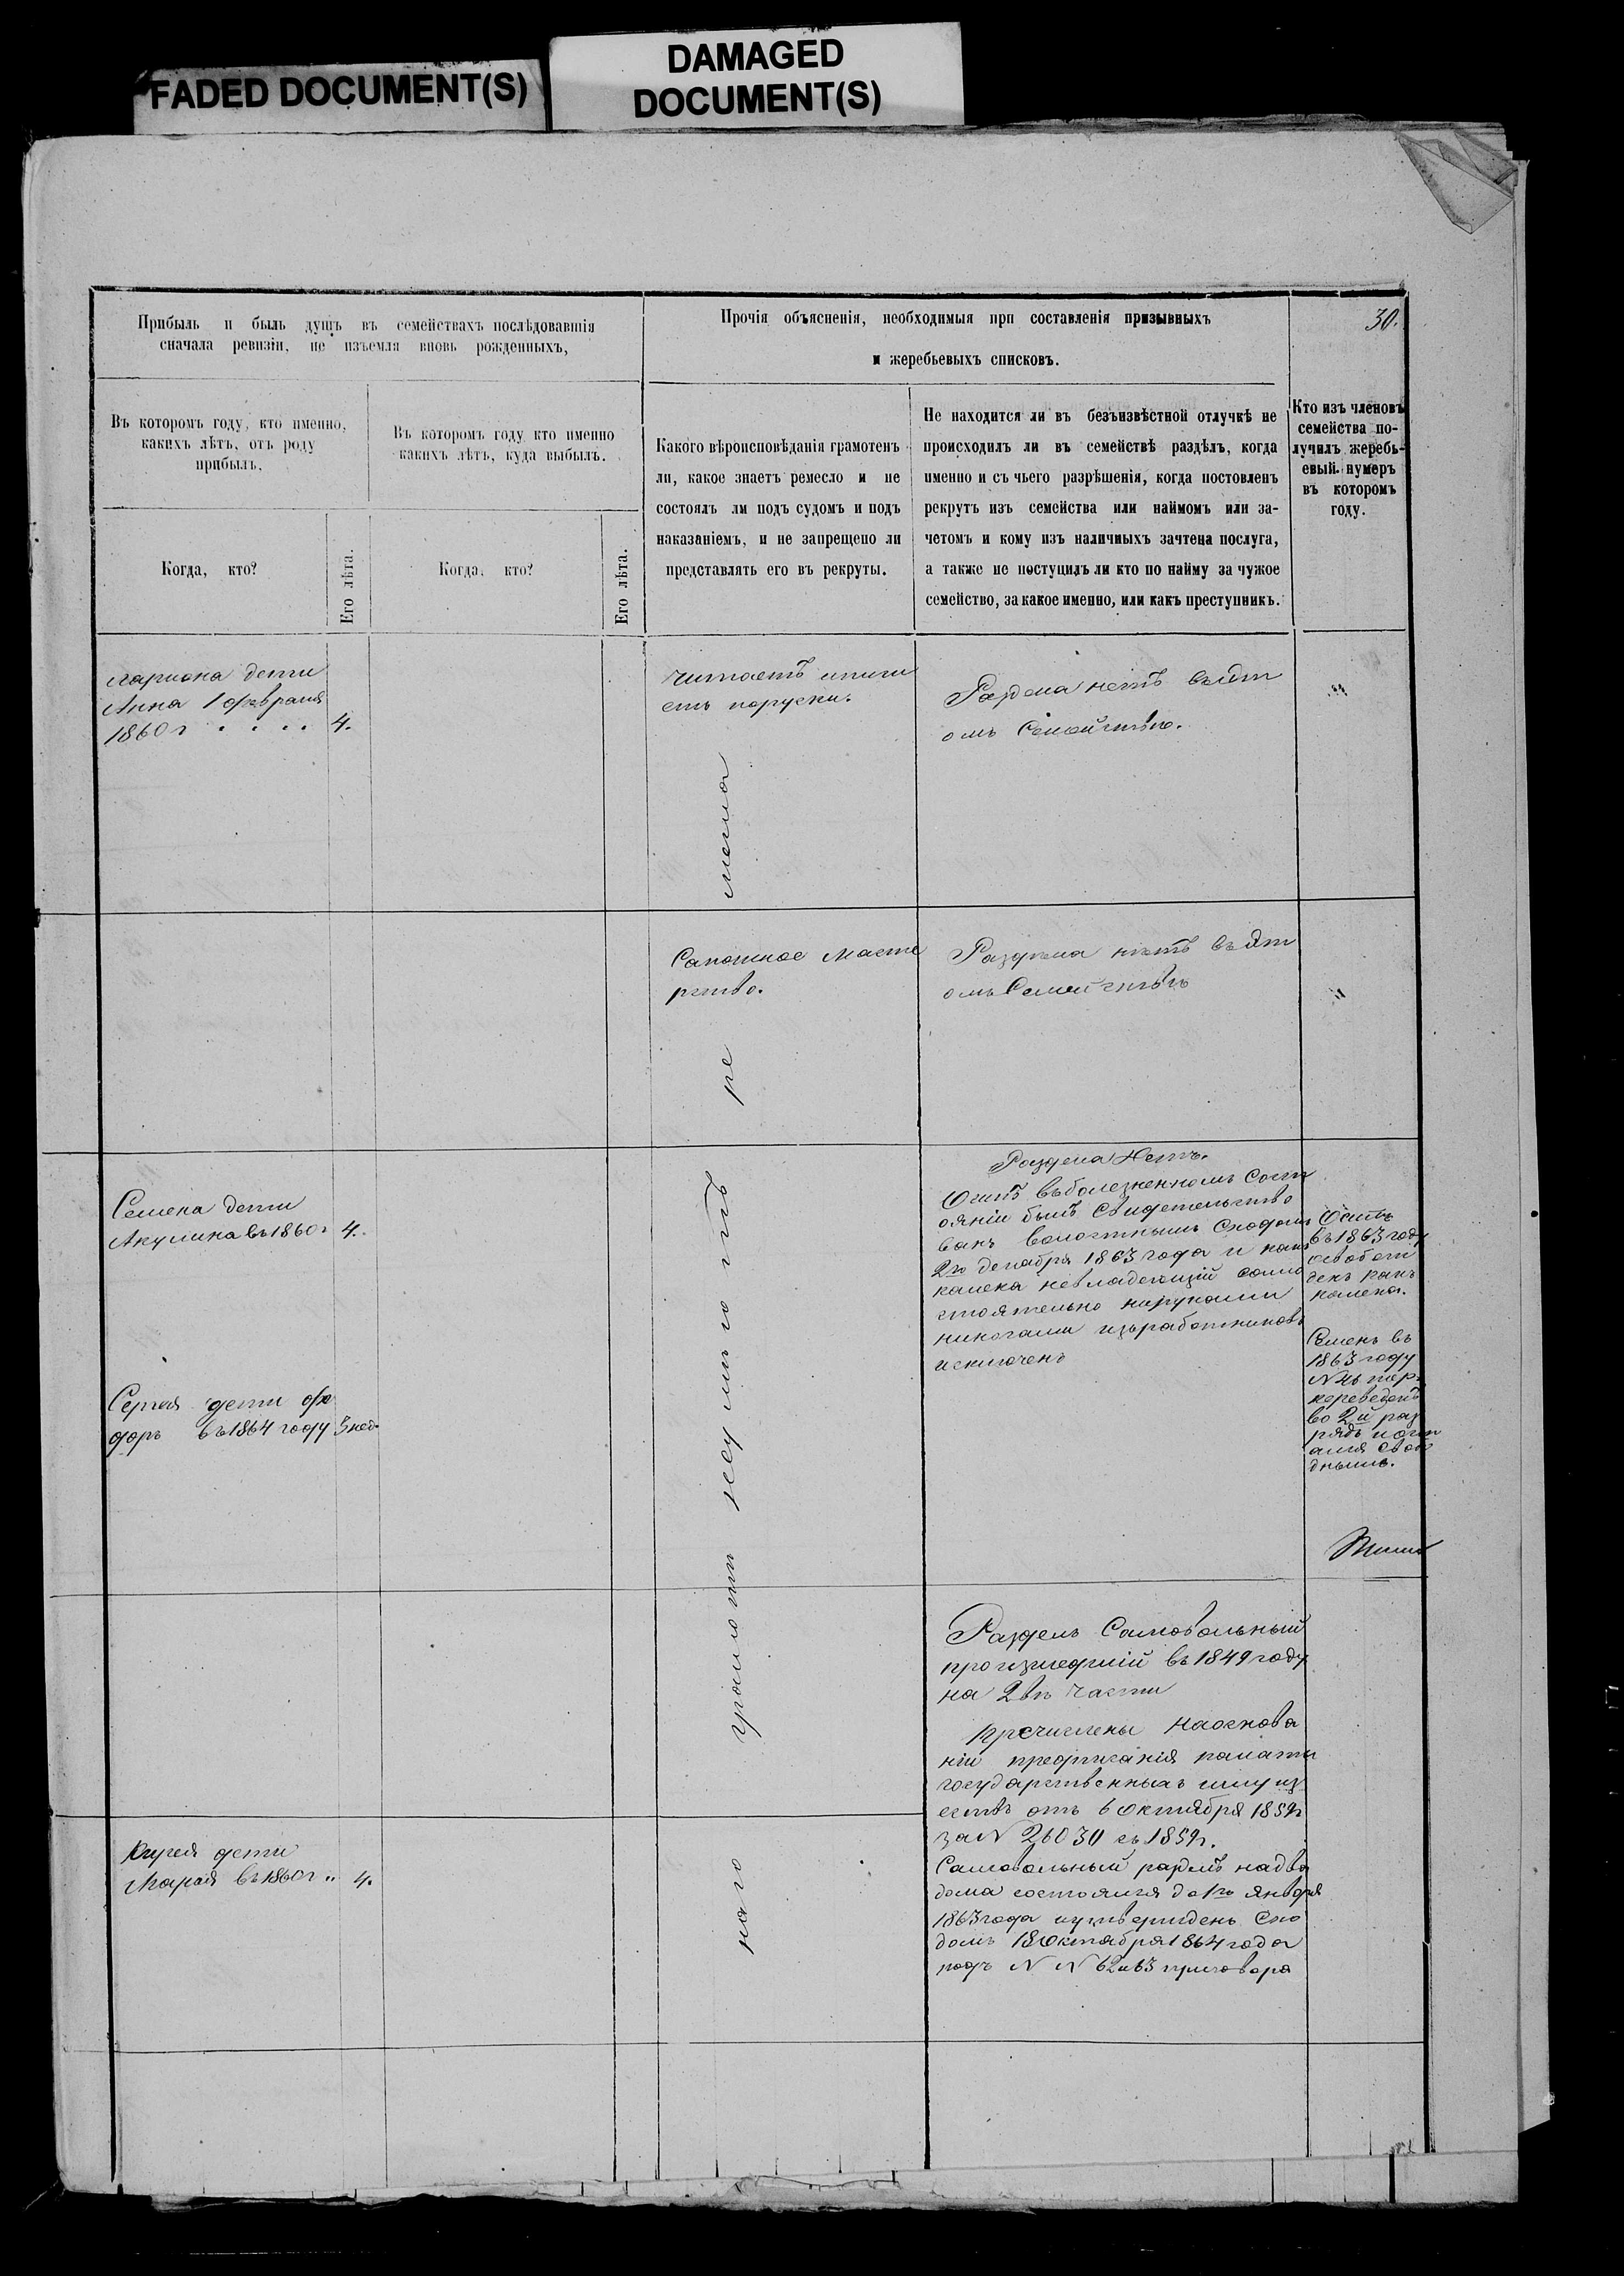 FADED DOCUMENT(S)
DAMAGED
DOCUMENT(S)
30.
Прибыль и быль душъ въ семействахъ послѣдовавшія
сначала ревизіи, не изъемля вновь рожденныхъ,
Прочія объясненія, необходимыя при составленія призывныхъ
и жеребьевыхъ списковъ.
Въ которомъ году, кто именно,
какихъ лѣтъ, отъ роду
прибылъ.
Въ которомъ году кто именно
какихъ лѣтъ, куда выбылъ.
Какого вѣроисповѣданія грамотенъ
ли, какое знаетъ ремесло и не
состоялъ ли подъ судомъ и подъ
наказаніемъ, и не запрещено ли
представлять его въ рекруты.
Не находится ли въ безъизвѣстной отлучкѣ не
происходилъ ли въ семействѣ раздѣлъ, когда
именно и съ чьего разрѣшенія, когда постовленъ
рекрутъ изъ семейства или наймомъ или за-
четомъ и кому изъ наличныхъ зачтена послуга,
а также не поступилъ ли кто по найму за чужое
семейство, за какое именно, или какъ преступникъ.
Кто изъ членовъ
семейства по-
лучилъ жеребь-
евый нумеръ
въ которомъ
году.
Когда, кто?
Его лѣта.
Когда, кто?
Его лѣта.
Лариона дети
Анна 1 февраля
1860 г . . . . 4.
Читаетъ
Раздела нетъ въ Эт
омъ Семействе.
Сапожное масте
рство.
Раздела нетъ въ Эт
омъ Семействъ
Семена дети
Акулина въ 1860 г 4.
Сергея дети Фе
доръ въ 1864 году 3 нед.
Раздела Нетъ.
въ болезненномъ Сост
ояніи былъ Свидетельство
ванъ волостнымъ Сходомъ
2го декабря 1863 года и какъ
калека невладеющій само
стоятельно ни руками
ни ногами изъ работниковъ
исключенъ
въ 1863 году
освобож
денъ какъ
калека.
Семенъ въ
1863 году
переведенъ
во 2й раз
рядъ и ост
ался Свобо
днымъ.
Разделъ Самовольный
произшедшій въ 1849 году
на 2 вѣ части
Пречислены на основа
ніи предписанія палаты
государственныхъ имущ
ествъ отъ 6 Октября 1859г
за N 26030 съ 1859г.
Самовольный на два
дома состоялся до 1го Января
1863 года и утвержденъ Схо
домъ 18 Октября 1864 года
подъ N N 62 и 63 приговора
дети
Марья въ 1860 г .. 4.